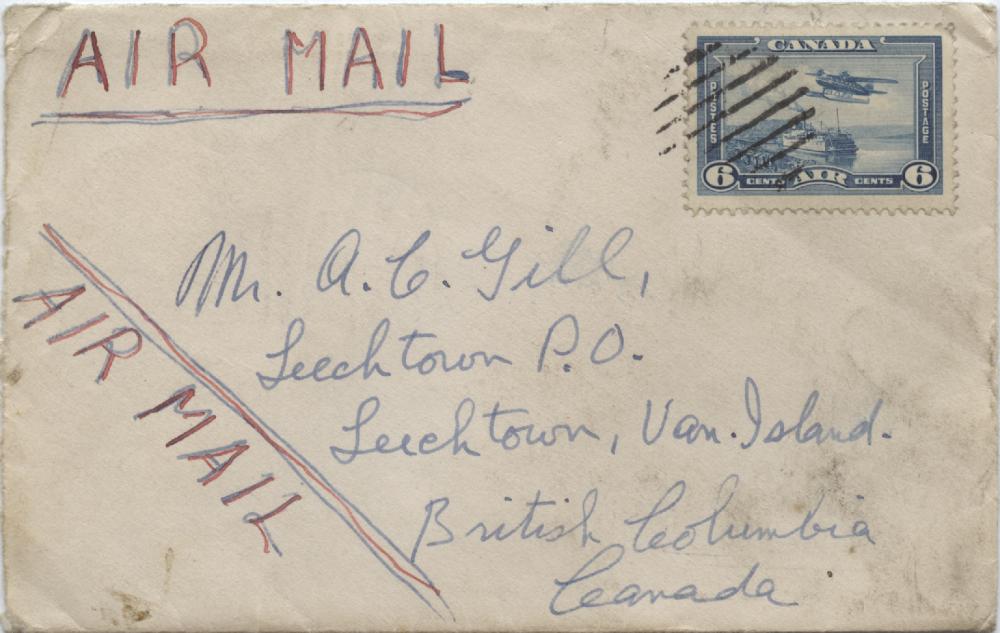 AIR MAIL
CANADA
POSTES
POSTAGE
6 CENTS AIR CENTS 6
AIR MAIL
Mr. A. C. Gill,
Leechtown P.O.
Leechtown, Van. Island.
British Columbia
Canada